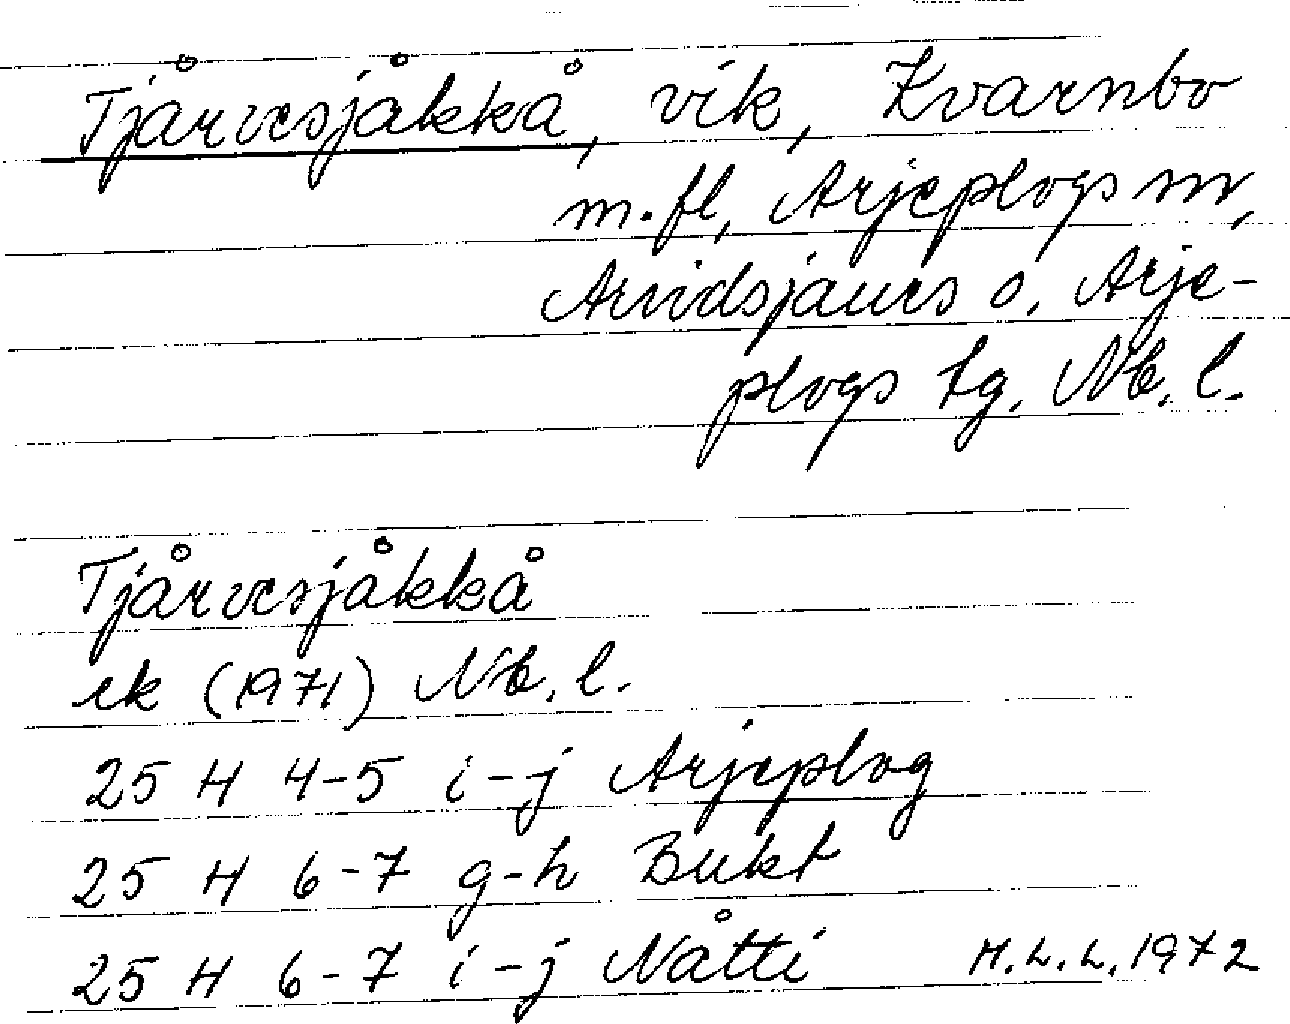 Tjårvesjåkkå, vik, Kvarnbo
m.fl, Arjeplogs sn,
Arvidsjaurs o. Arje-
plogs tg. Nb. l.
Tjårvesjåkkå
ek (1971) Nb. l.
25 H 4-5 i-j Arjeplog
25 H 6-7 g-h Bukt
25 H 6-7 i-j Nåtti M.L.L. 1972